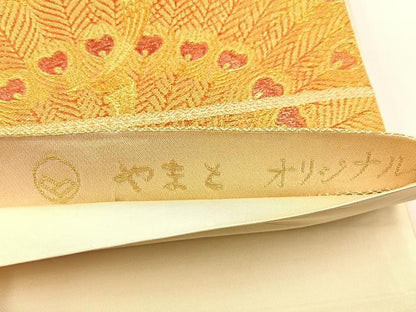 やまと オリジナル